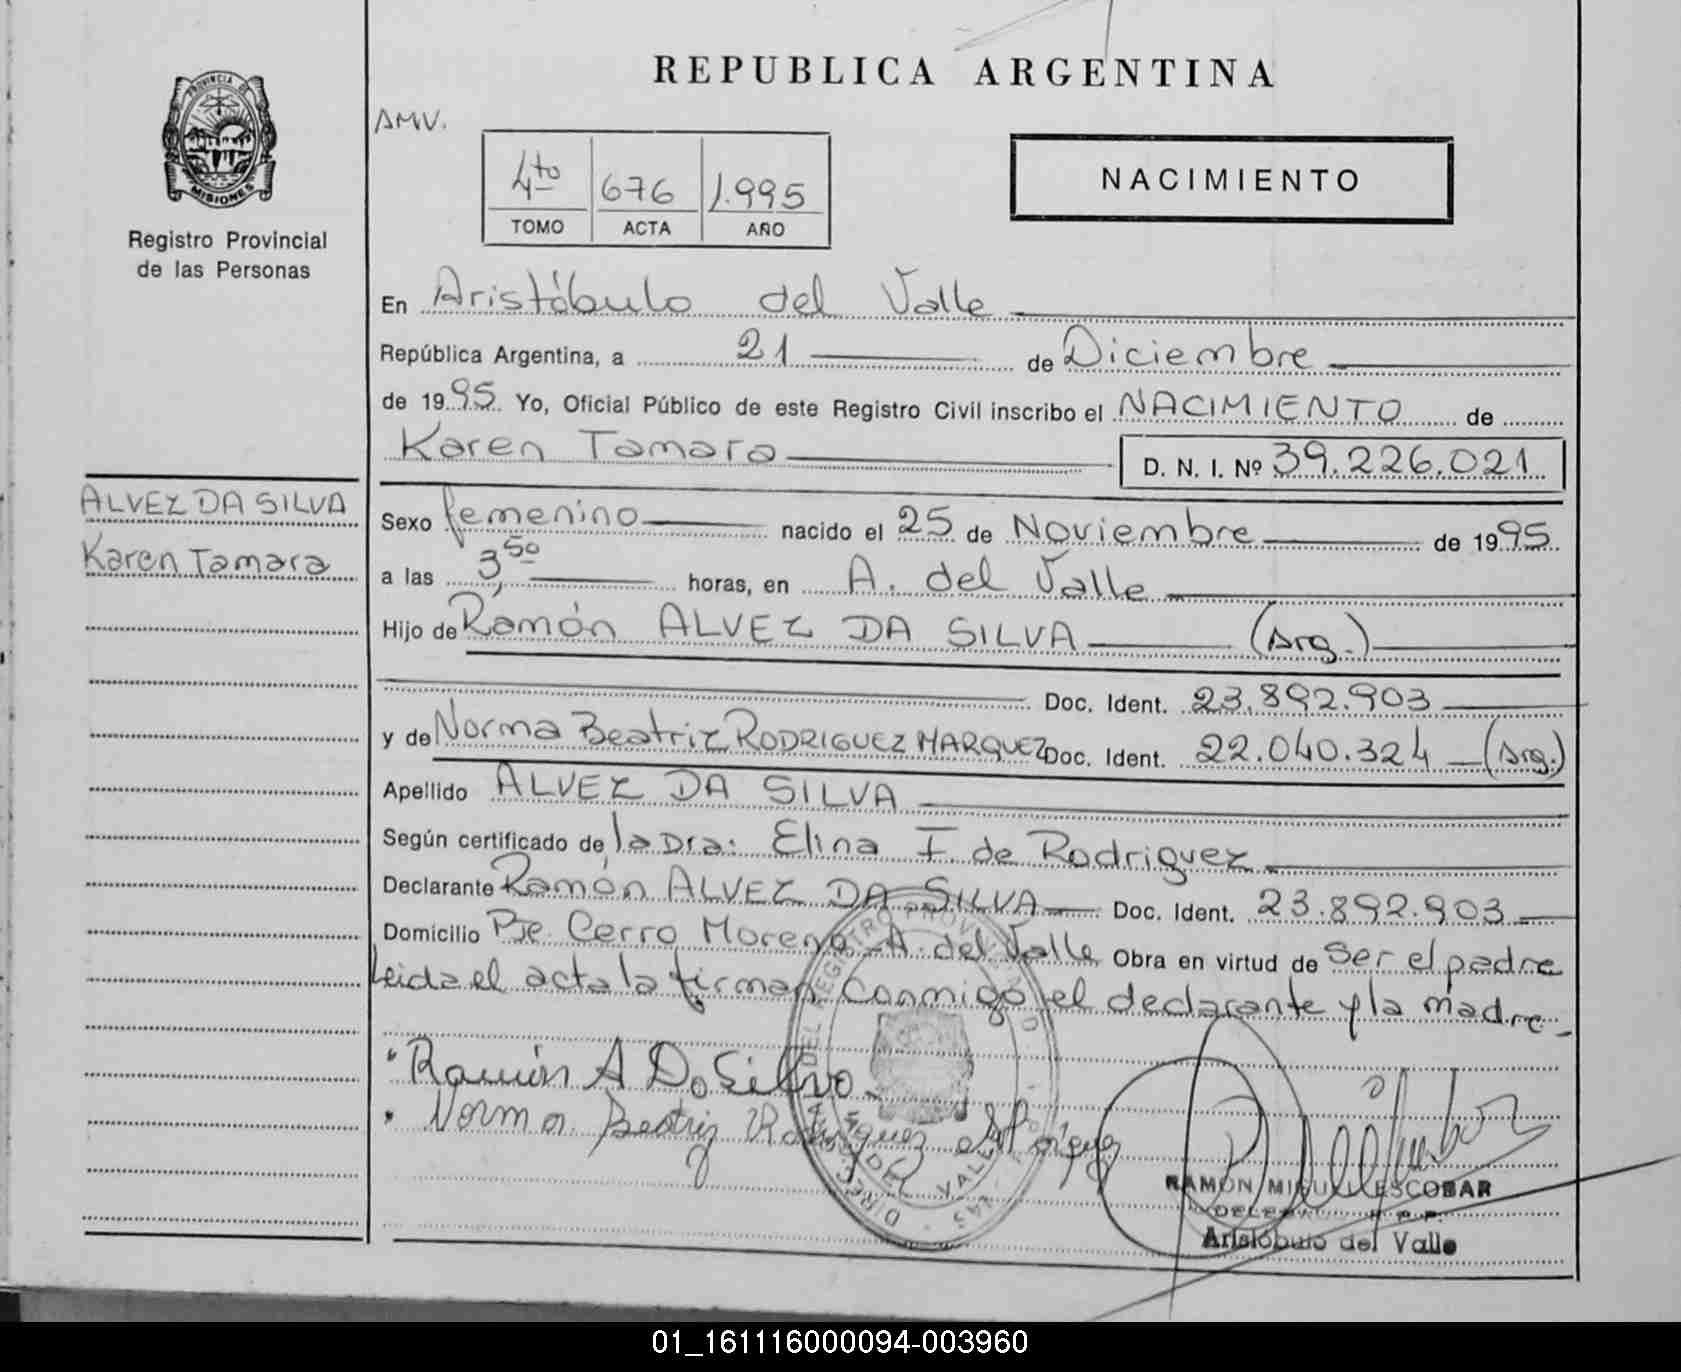 PROVINCIA DE
MISIONES
Registro Provincial
de las Personas
ALVEZ DA SILVA
Karen Tamara
REPUBLICA ARGENTINA
AMV.
4to 676 1.995
TOMO ACTA AÑO
NACIMIENTO
En Aristóbulo del Valle
República Argentina, a 21 de Diciembre
de 1995 Yo, Oficial Público de este Registro Civil inscribo el NACIMIENTO de
Karen Tamara D. N. I. Nº 39.226.021
Sexo femenino nacido el 25 de Noviembre de 1995
a las 3,50 horas, en A. del Valle
Hijo de Ramón ALVEZ DA SILVA (Arg.)
Doc. Ident. 23.892.903
y de Norma Beatriz RODRIGUEZ MARQUEZ Doc. Ident. 22.040.324 (Arg.)
Apellido ALVEZ DA SILVA
Según certificado de la Dra: Elina I. de Rodriguez
Declarante Ramón ALVEZ DA SILVA Doc. Ident. 23.892.903
Domicilio Pje. Cerro Moreno - A. del Valle Obra en virtud de ser el padre
Leida el acta la firman conmigo el declarante y la madre.-
Ramón A Da Silva
Norma Beatriz Rodriguez
RAMON MIGUEL ESCOBAR
DELEGADO R.P.P.
Aristóbulo del Valle
01_161116000094-003960